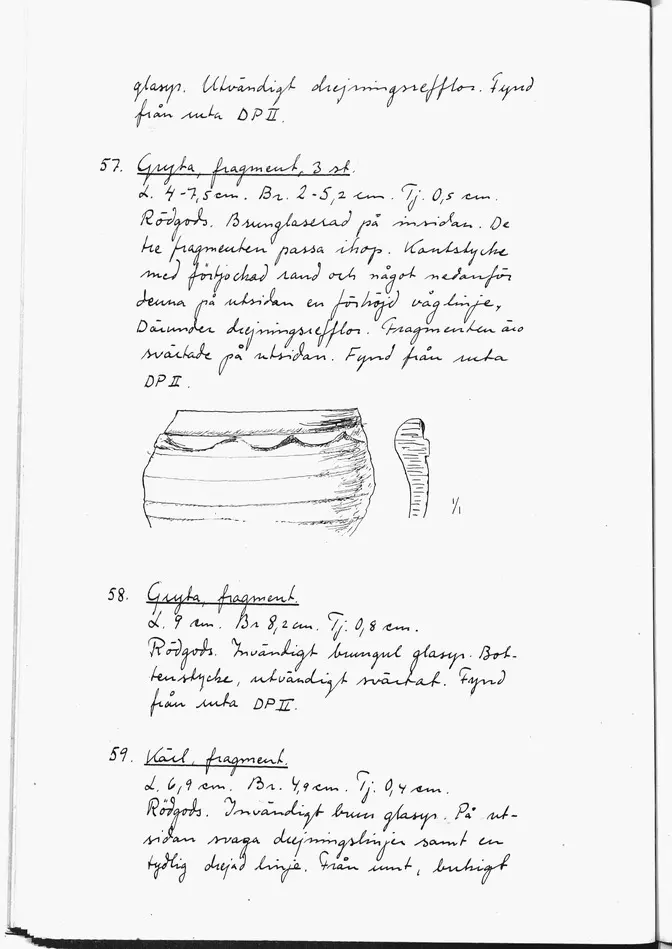 glasyr. Utvändigt drejningsrefflor. Fynd
från ruta DP II.
57. Gryta, fragment, 3 st.
L. 4-7,5 cm. Br. 2-5,2 cm. Tj. 0,5 cm.
Rödgods. Brunglaserad på insidan. De
tre fragmenten passa ihop. Kantstycke
med förtjockad rand och något nedanför
denna på utsidan en förhöjd våglinje,
Därunder drejningsrefflor. Fragmenten äro
svärtade på utsidan. Fynd från ruta
DP II.
1/1
58. Gryta, fragment.
L. 9 cm. Br 8,2 cm. Tj. 0,8 cm.
Rödgods. Invändigt brungul glasyr. Bot-
tenstycke, utvändigt svärtat. Fynd
från ruta DP II.
59. Kärl, fragment.
L. 6,9 cm. Br. 4,9 cm. Tj. 0,4 cm.
Rödgods. Invändigt brun glasyr. På ut-
sidan svaga drejningslinjer samt en
tydlig drejad linje. Från runt, bukigt